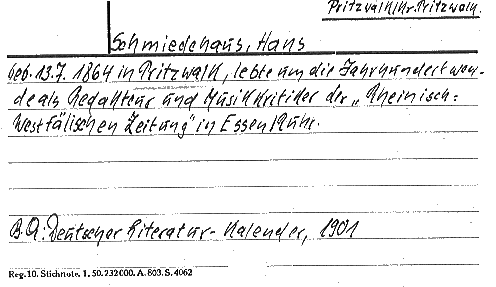 Pritzwalk/Kr. Pritzwalk.
Schmiedehaus, Hans
geb. 13.7. 1864 in Pritzwalk, lebte um die Jahrhundertwen-
de als Redakteur und Musikkritiker der „Rheinisch=
Westfälischen Zeitung" in Essen/Ruhr.
B.Q.: Deutscher Literatur-Kalender, 1901
Reg. 10. Stichnote. 1. 50. 232000. A. 803. S. 4062